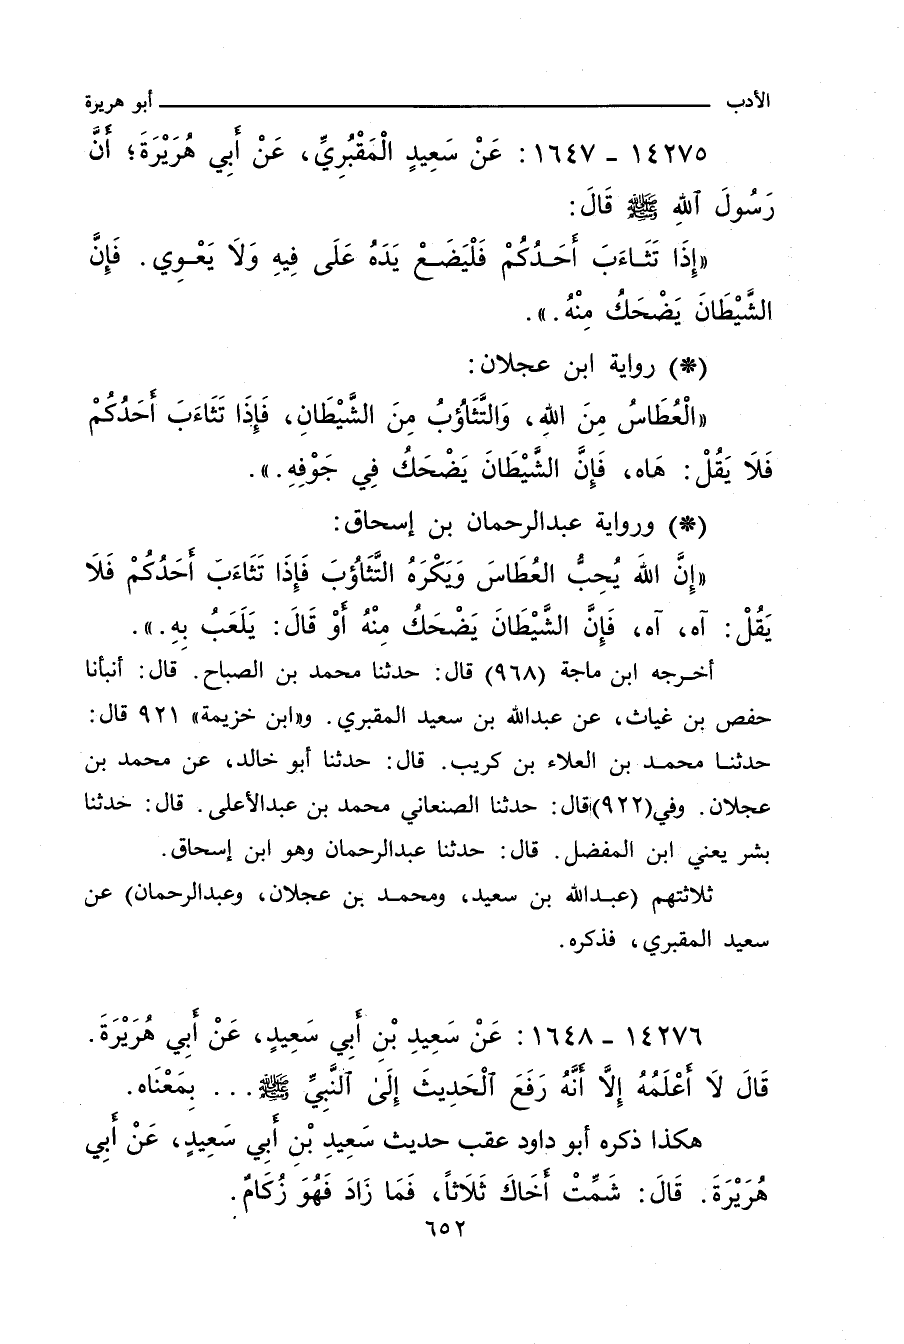 الأدب ــــــــــ أبو هريرة
١٤٢٧٥ - ١٦٤٧: عَنْ سَعِيدٍ الْمَقْبُرِيِّ، عَنْ أَبِي هُرَيْرَةَ؛ أَنَّ
رَسُولَ ٱللهِ ﷺ قَالَ:
«إِذَا تَثَاءَبَ أَحَدُكُمْ فَلْيَضَعْ يَدَهُ عَلَى فِيهِ وَلَا يَعْوِي. فَإِنَّ
الشَّيْطَانَ يَضْحَكُ مِنْهُ.».
(*) رواية ابن عجلان:
«الْعُطَاسُ مِنَ اللهِ، وَالتَّثَاؤُبُ مِنَ الشَّيْطَانِ، فَإِذَا تَثَاءَبَ أَحَدُكُمْ
فَلَا يَقُلْ: هَاه، فَإِنَّ الشَّيْطَانَ يَضْحَكُ فِي جَوْفِهِ.».
(*) ورواية عبدالرحمان بن إسحاق:
«إِنَّ اللهَ يُحِبُّ العُطَاسَ وَيَكْرَهُ التَّثَاؤُبَ فَإِذَا تَثَاءَبَ أَحَدُكُمْ فَلَا
يَقُلْ: آه، آه، فَإِنَّ الشَّيْطَانَ يَضْحَكُ مِنْهُ أَوْ قَالَ: يَلْعَبُ بِهِ.».
أخرجه ابن ماجة (٩٦٨) قال: حدثنا محمد بن الصباح. قال: أنبأنا
حفص بن غياث، عن عبدالله بن سعيد المقبري. و«ابن خزيمة» ٩٢١ قال:
حدثنا محمد بن العلاء بن كريب. قال: حدثنا أبو خالد، عن محمد بن
عجلان. وفي(٩٢٢)قال: حدثنا الصنعاني محمد بن عبدالأعلى. قال: حدثنا
بشر يعني ابن المفضل. قال: حدثنا عبدالرحمان وهو ابن إسحاق.
ثلاثتهم (عبدالله بن سعيد، ومحمد بن عجلان، وعبدالرحمان) عن
سعيد المقبري، فذكره.
١٤٢٧٦ - ١٦٤٨: عَنْ سَعِيدِ بْنِ أَبِي سَعِيدٍ، عَنْ أَبِي هُرَيْرَةَ.
قَالَ لَا أَعْلَمُهُ إِلَّا أَنَّهُ رَفَعَ ٱلْحَدِيثَ إِلَىٰ ٱلنَّبِيِّ ﷺ... بِمَعْنَاه.
هكذا ذكره أبو داود عقب حديث سَعِيدِ بْنِ أَبِي سَعِيدٍ، عَنْ أَبِي
هُرَيْرَةَ. قَالَ: شَمِّتْ أَخَاكَ ثَلَاثاً، فَمَا زَادَ فَهُوَ زُكَامٌ.
٦٥٢